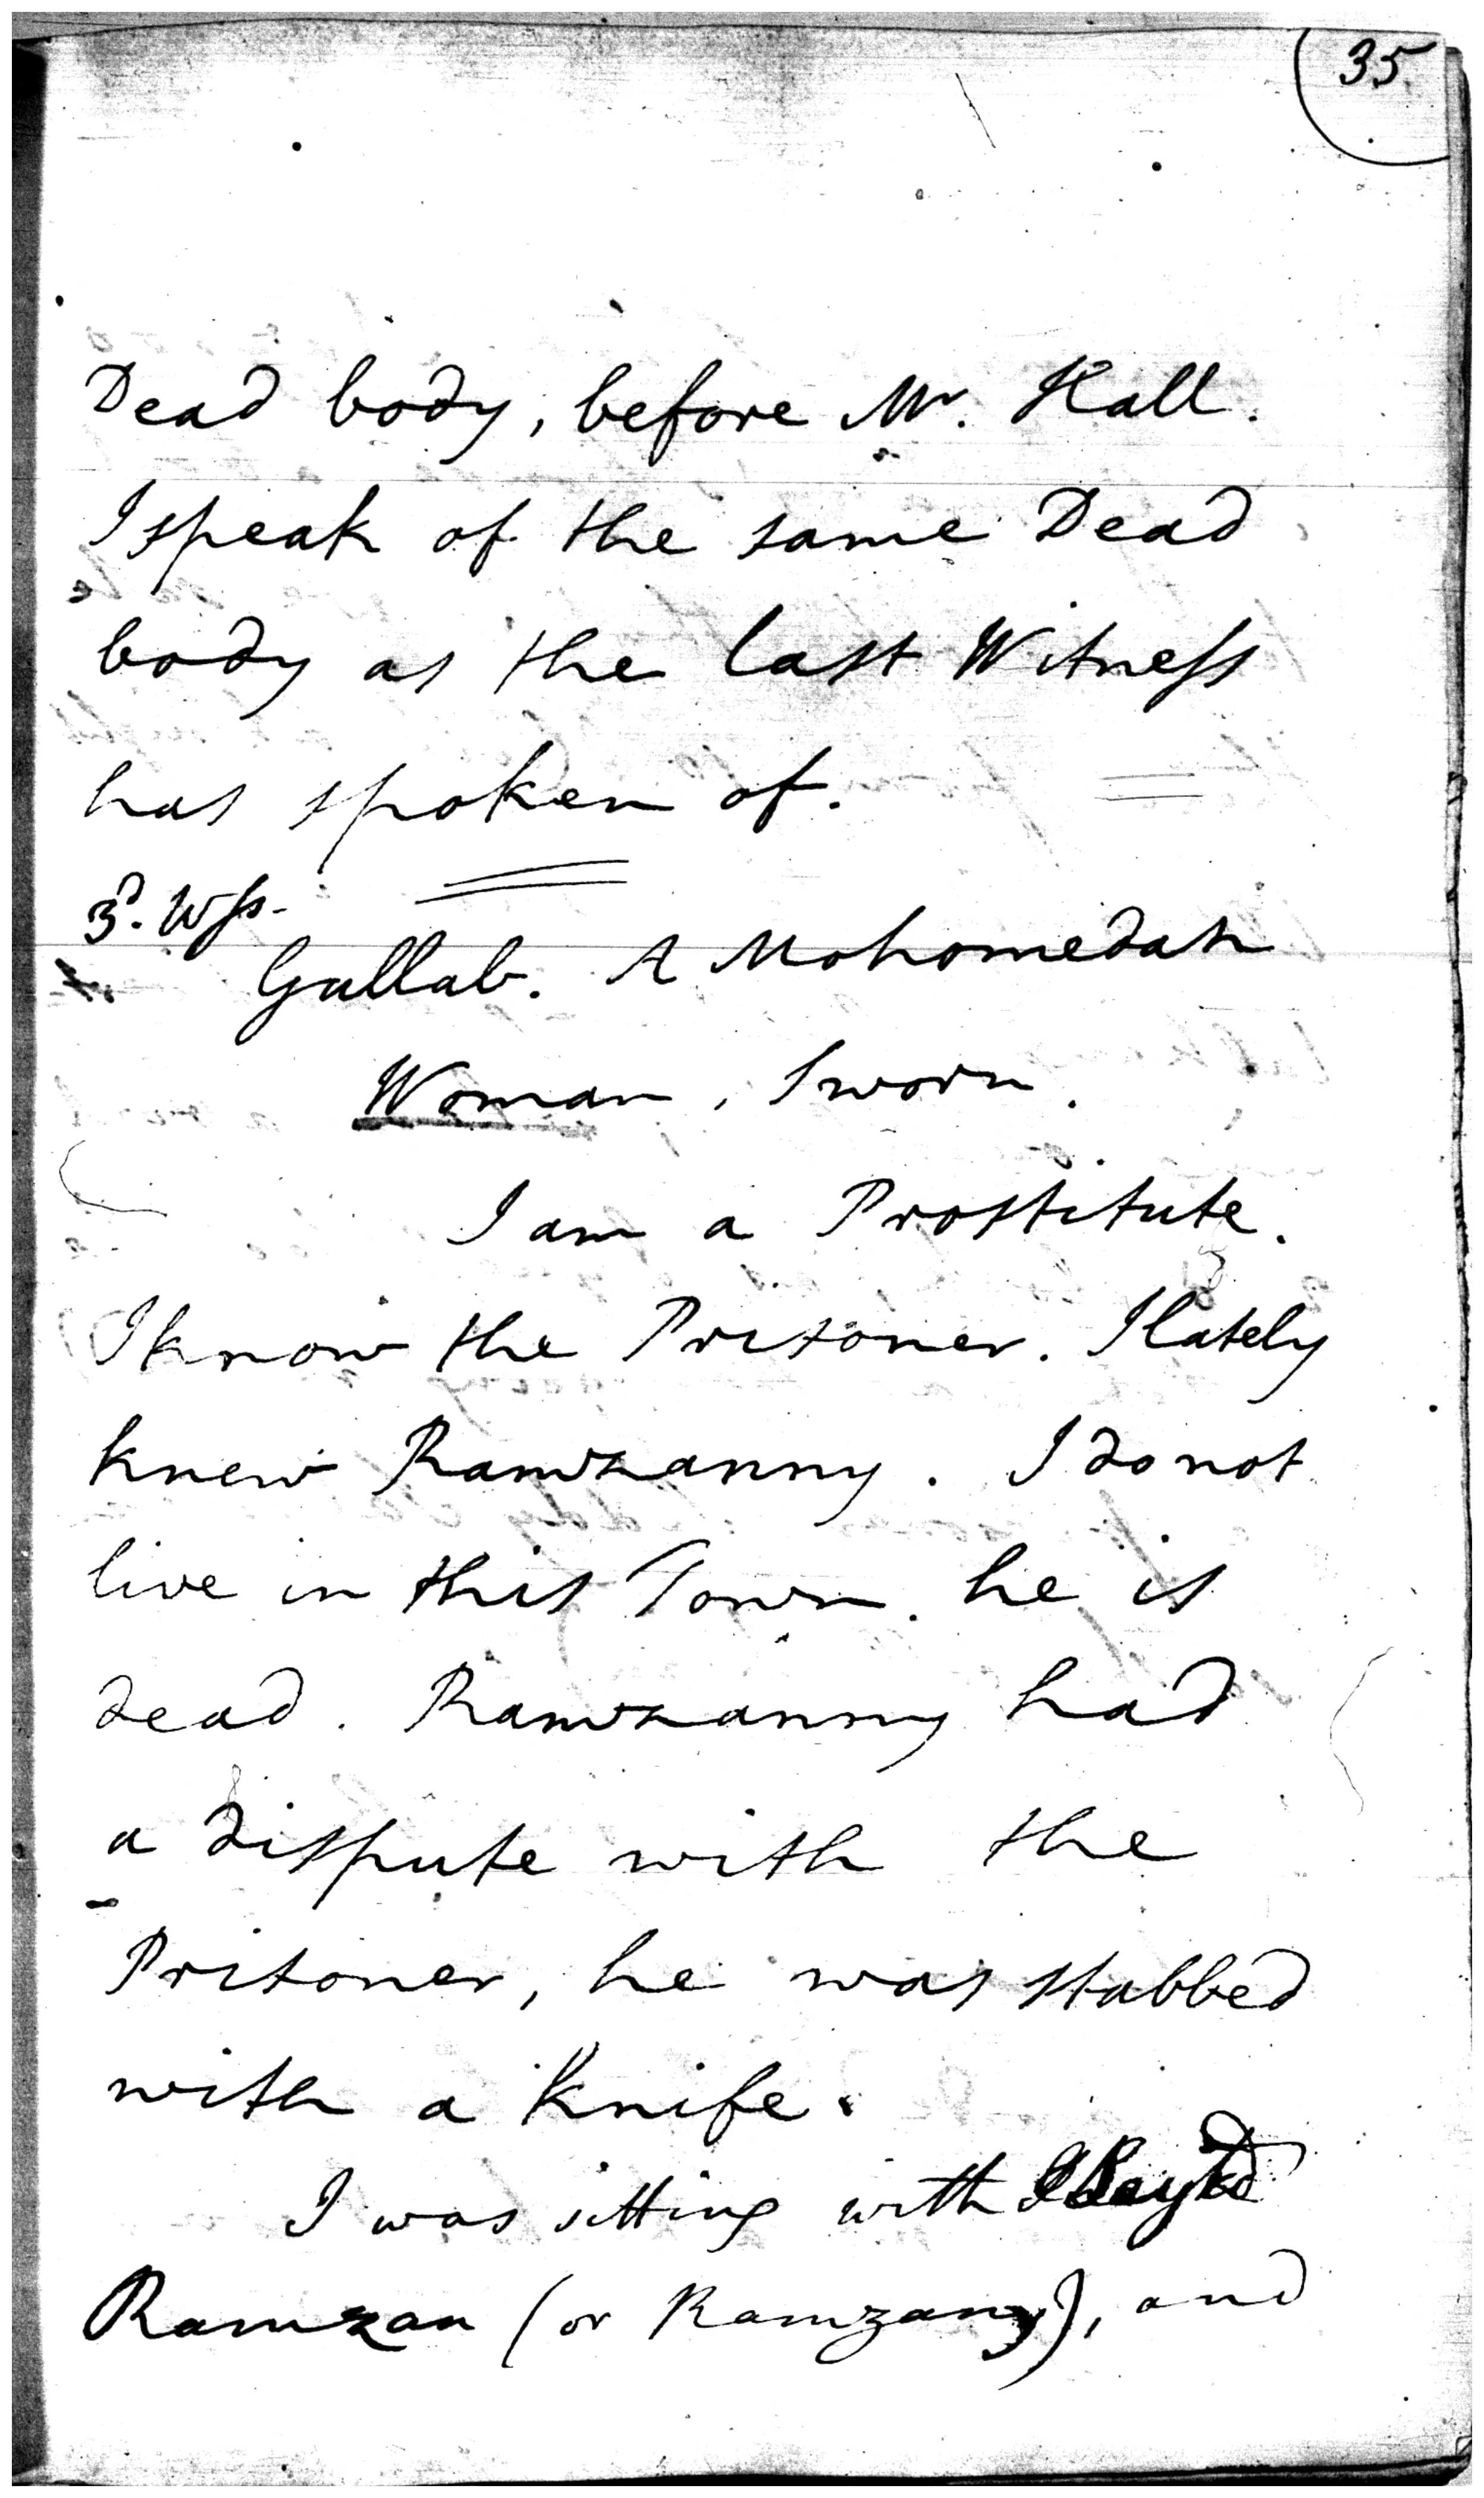 35
Dead body, before Mr. Hall.
I speak of the same Dead
body as the last Witness
has spoken of.
3d. Wss.
Gullab. A Mohomedan
Woman, Sworn.
I am a Prostitute.
I know the Prisoner. I lately
knew Ramzanny. I do not
live in this Town. he is
dead. Ramzanny had
a dispute with the
Prisoner, he was stabbed
with a Knife.
I was sitting with
Ramzan (or Ramzany), and